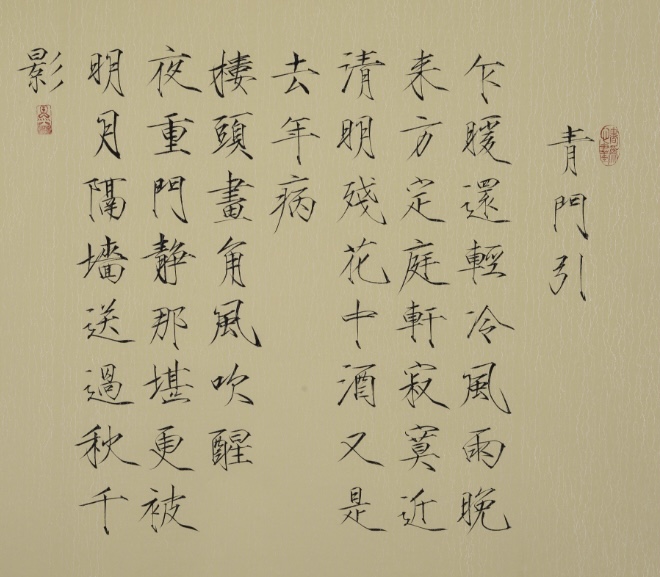 青門引
乍暖還輕冷風雨晚
来方定庭軒寂寞近
清明殘花中酒又是
去年病
樓頭畫角風吹醒
夜重門静那堪更被
明月隔墻送過秋千
影